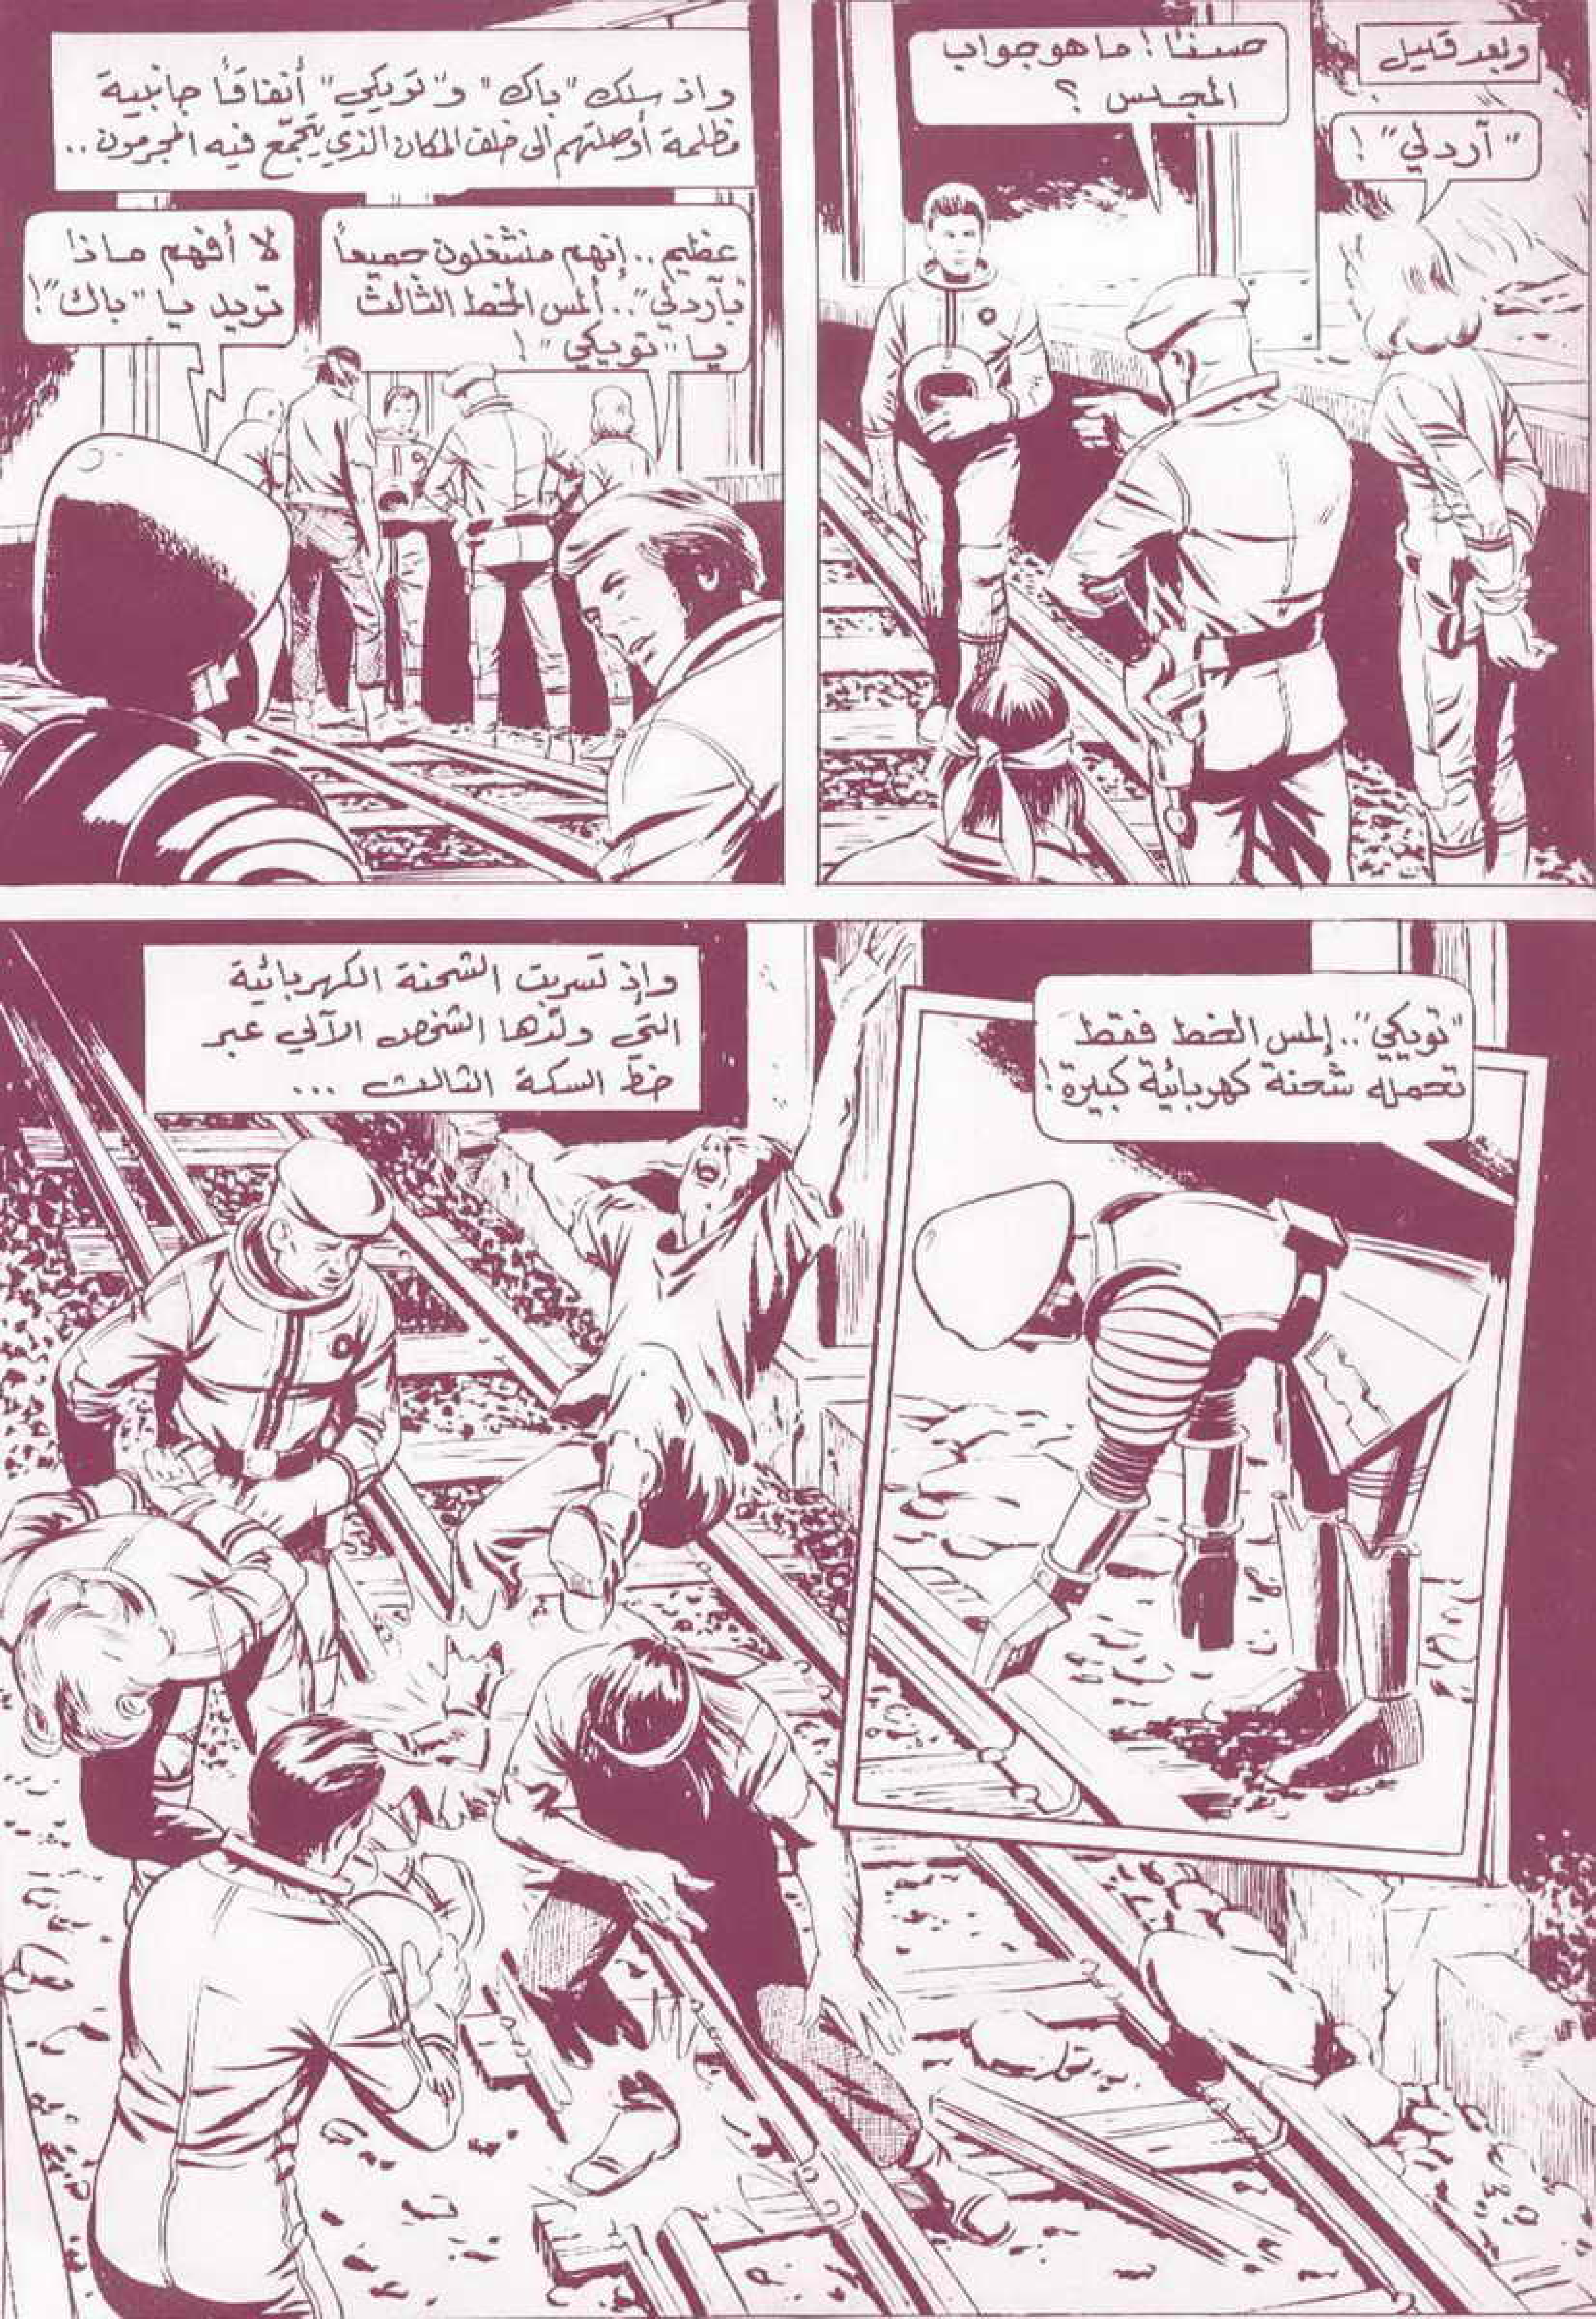 وبعد قليل
"آردلي"!
حسناً! ما هو جواب
المجلس ؟
واذ سلك "باك" و"تويكي" أنفاقاً جانبية
مظلمة أوصلتهم الى خلف المكان الذي يتجمّع فيه المجرمون..
عظيم.. إنهم منشغلون جميعاً
بآردلي".. ألمس الخط الثالث
يا "تويكي"!
لا أفهم ماذا
تريد يا "باك"!
"تويكي".. إلمس الخط فقط
تحمله شحنة كهربائية كبيرة!
وإذ تسربت الشحنة الكهربائية
التي ولّدها الشخص الآلي عبر
خط السكة الثالث ...